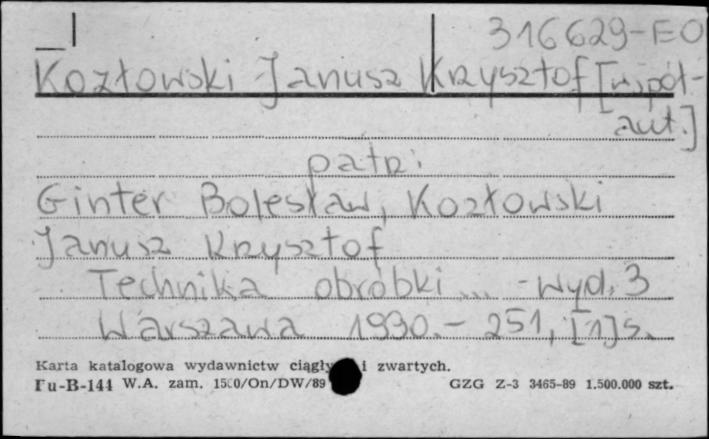 316629-EO
Kozłowski Janusz Krzysztof [współ-
aut.]
patrz:
Ginter Bolesław, Kozłowski
Janusz Krzysztof
Technika obróbki ... - Wyd. 3
Warszawa 1990. - 251, [1] s.
Karta katalogowa wydawnictw ciągły i zwartych.
Pu-B-144 W.A. zam. 1500/On/DW/89 GZG Z-3 3465-89 1.500.000 szt.